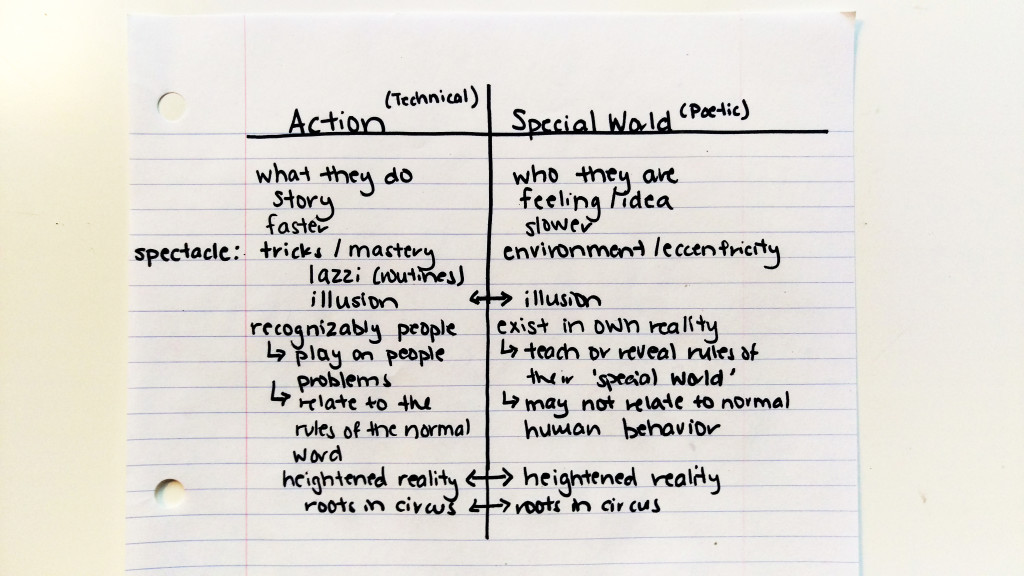 (Technical)
Action
Special World (Poetic)
what they do
who they are
story
feeling/idea
faster
slower
spectacle: tricks / mastery
environment /eccentricity
lazzi (routines)
illusion ↔ illusion
recognizably people
exist in own reality
↳ play on people
problems
↳ teach or reveal rules of
their 'special world'
↳ relate to the
rules of the normal
word
↳ may not relate to normal
human behavior
heightened reality ↔ heightened reality
roots in circus ↔ roots in circus